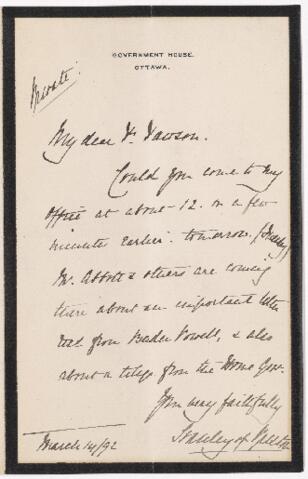 GOVERNMENT HOUSE.
OTTAWA.
Private.
My dear Dr. Dawson.
Could you come to my
office at about 12. or a few
minutes earlier. tomorrow.
Mr. Abbott & others are coming
there about an important letter
from Baden Powell, & also
about a telegr from the Home Gov.
Yours very faithfully
Stanley of Preston
March 14/92